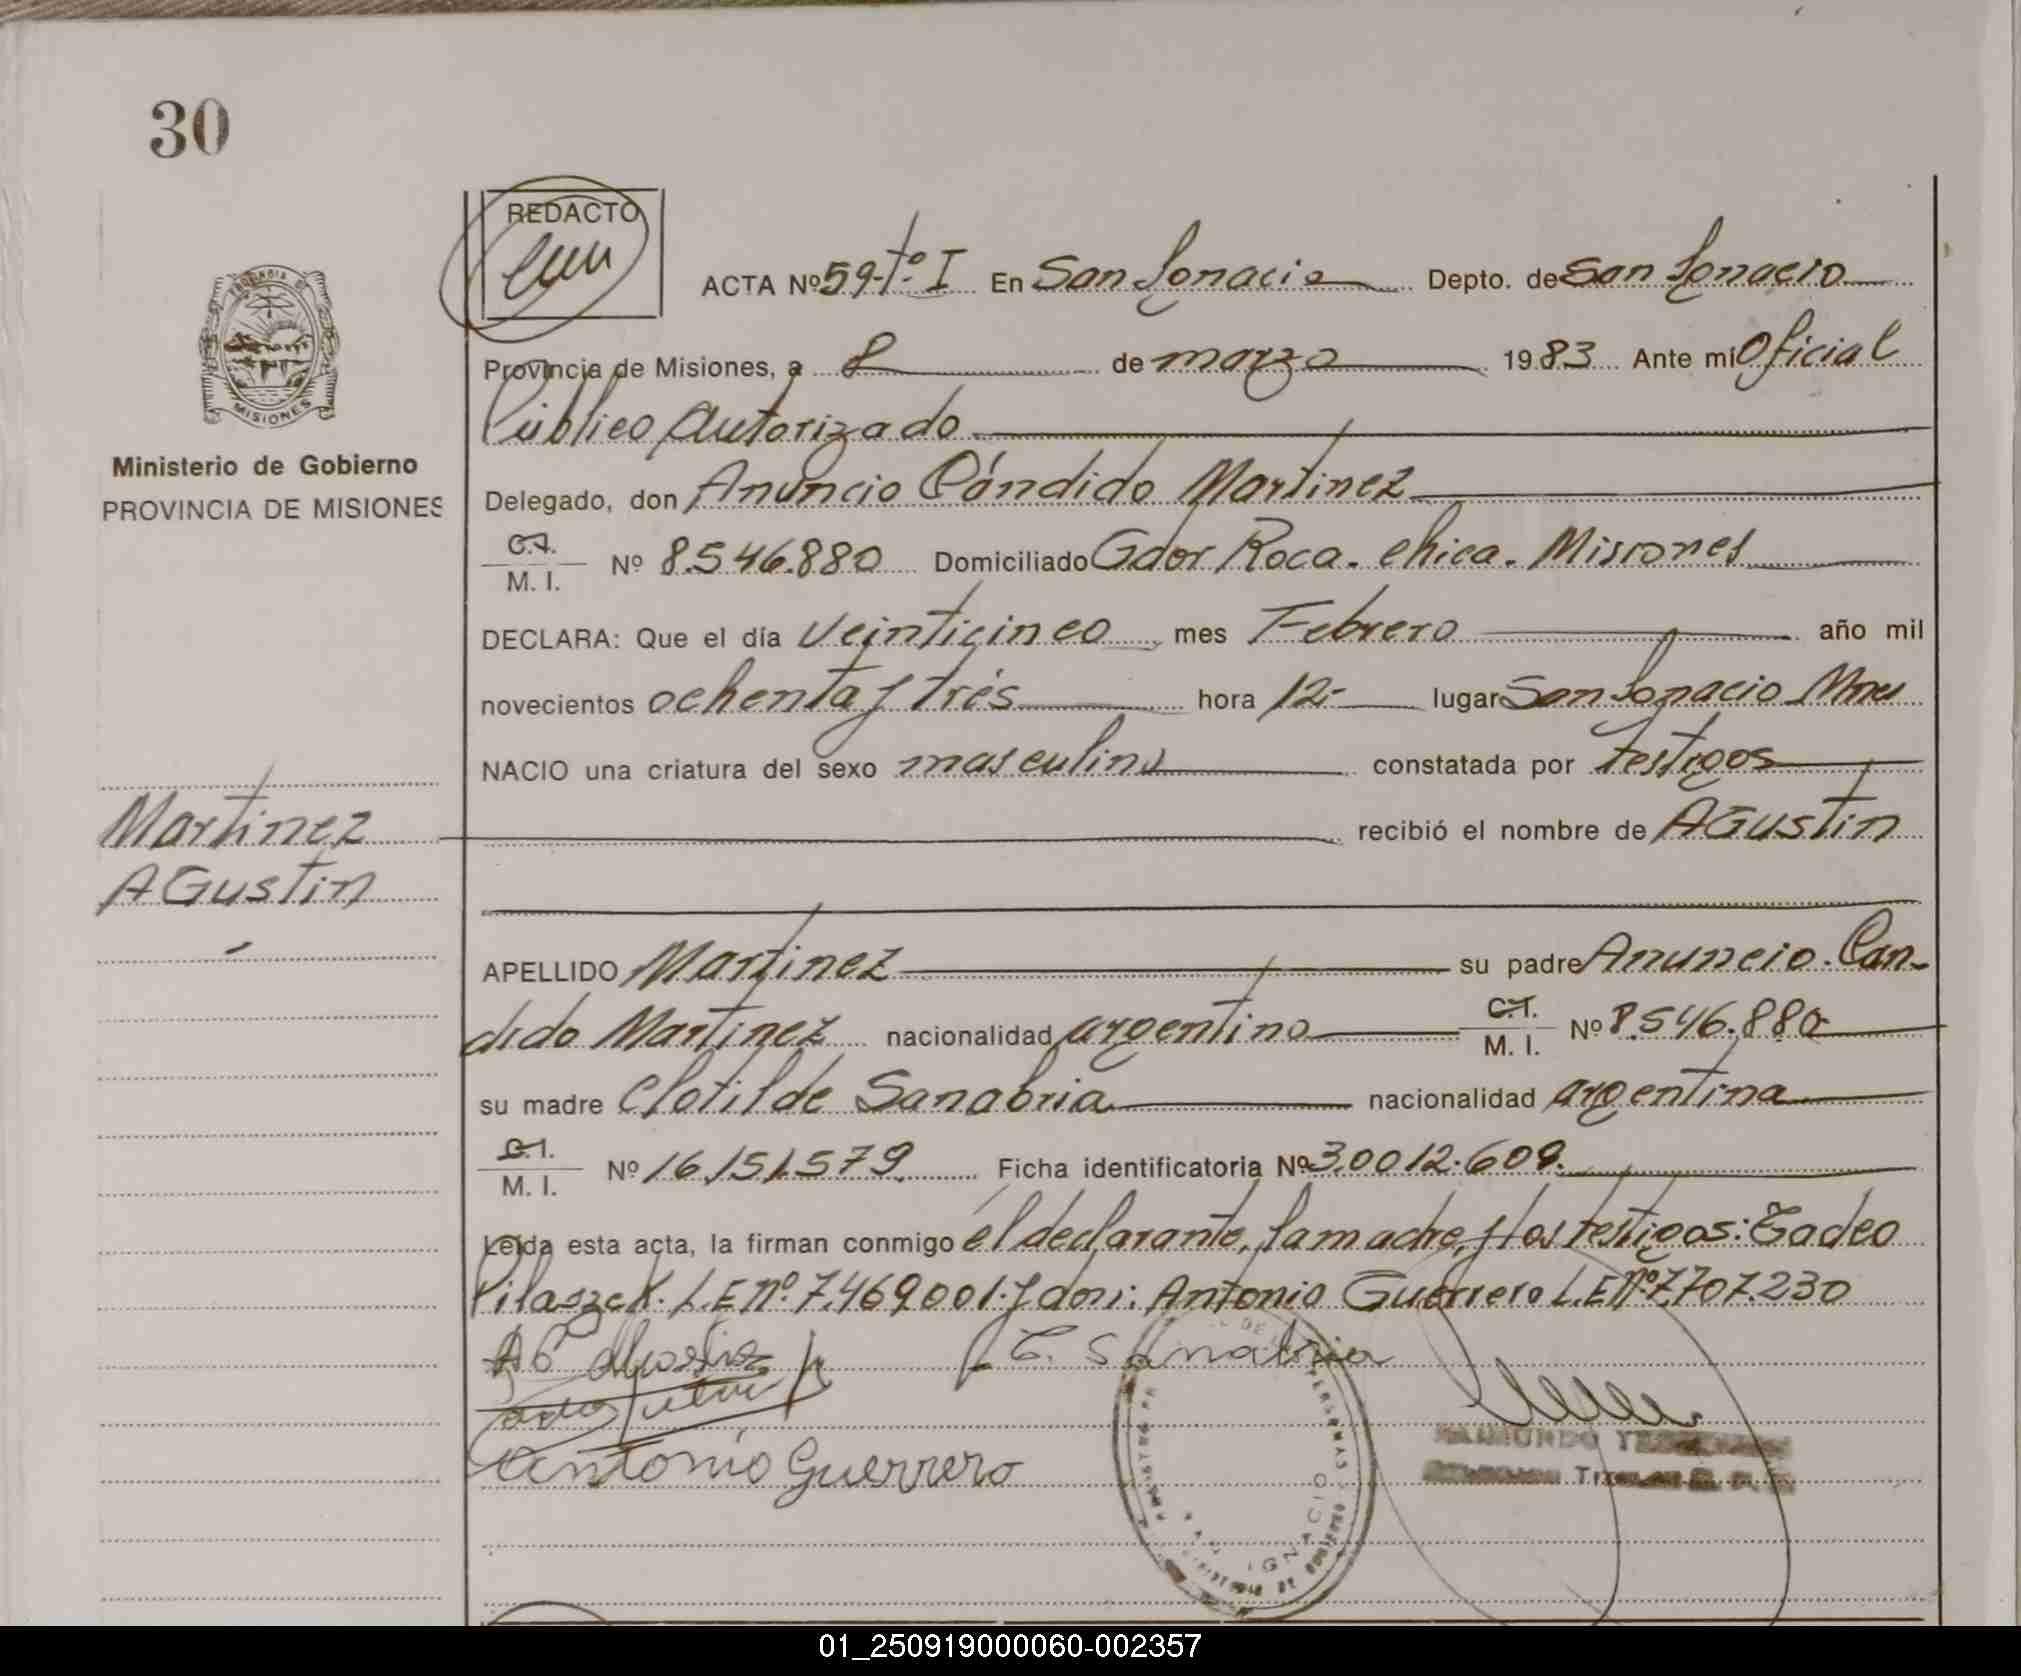 30
REDACTO
ACTA Nº 59-tº I En San Ignacio Depto. de San Ignacio
Provincia de Misiones, a 8 de marzo 1983 Ante mi Oficial
Público Autorizado
MISIONES
Ministerio de Gobierno
PROVINCIA DE MISIONES
Delegado, don Anuncio Cándido Martinez
C.I. M. I. Nº 8.546.880 Domiciliado Gdor Roca. chica. Misiones
DECLARA: Que el día veinticinco mes Febrero año mil
novecientos ochenta y trés hora 12- lugar San Ignacio Mnes
NACIO una criatura del sexo masculino constatada por testigos
recibió el nombre de AGustin
Martinez
AGustin
APELLIDO Martinez su padre Anuncio. Can-
dido Martinez nacionalidad argentino C.I. M. I. Nº 8.546.880
su madre Clotilde Sanabria nacionalidad argentina
C.I. M. I. Nº 16.151.579 Ficha identificatoria Nº 30012.609.
Leída esta acta, la firman conmigo el declarante, la madre, y los testigos: Tadeo
Pilaszek. L.E Nº. 7.469001. y don: Antonio Guerrero L.E Nº 7.707.230
C. Sanabria
Antonio Guerrero
RAIMUNDO
PERSONAS
SAN IGNACIO
01_250919000060-002357